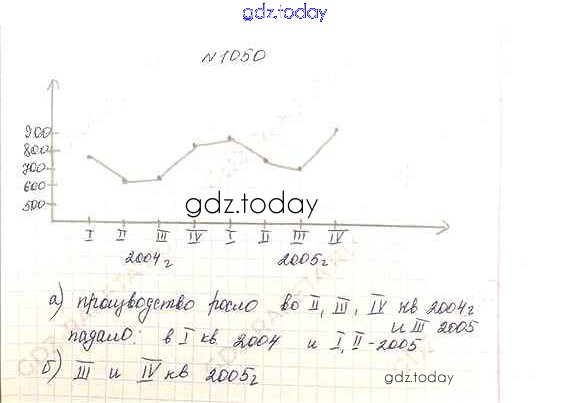 gdz.today
№1050
900
800
700
600
500
gdz.today
I II III IV I II III IV
2004г 2005г
а) производство росло во II, III, IV кв 2004г
и III 2005
падало: в I кв 2004 и I, II - 2005
б) III и IV кв 2005г
gdz.today